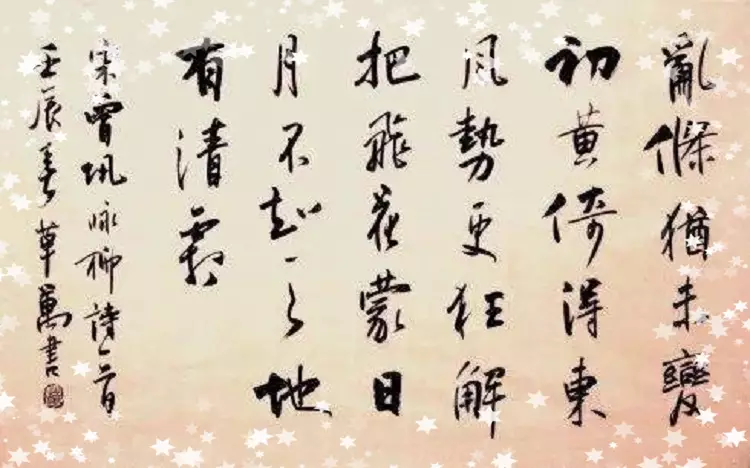 亂條猶未變
初黃倚得東
風勢更狂解
把飛花蒙日
月不知天地
有清霜
宋曾巩咏柳詩一首
壬辰春草萬書